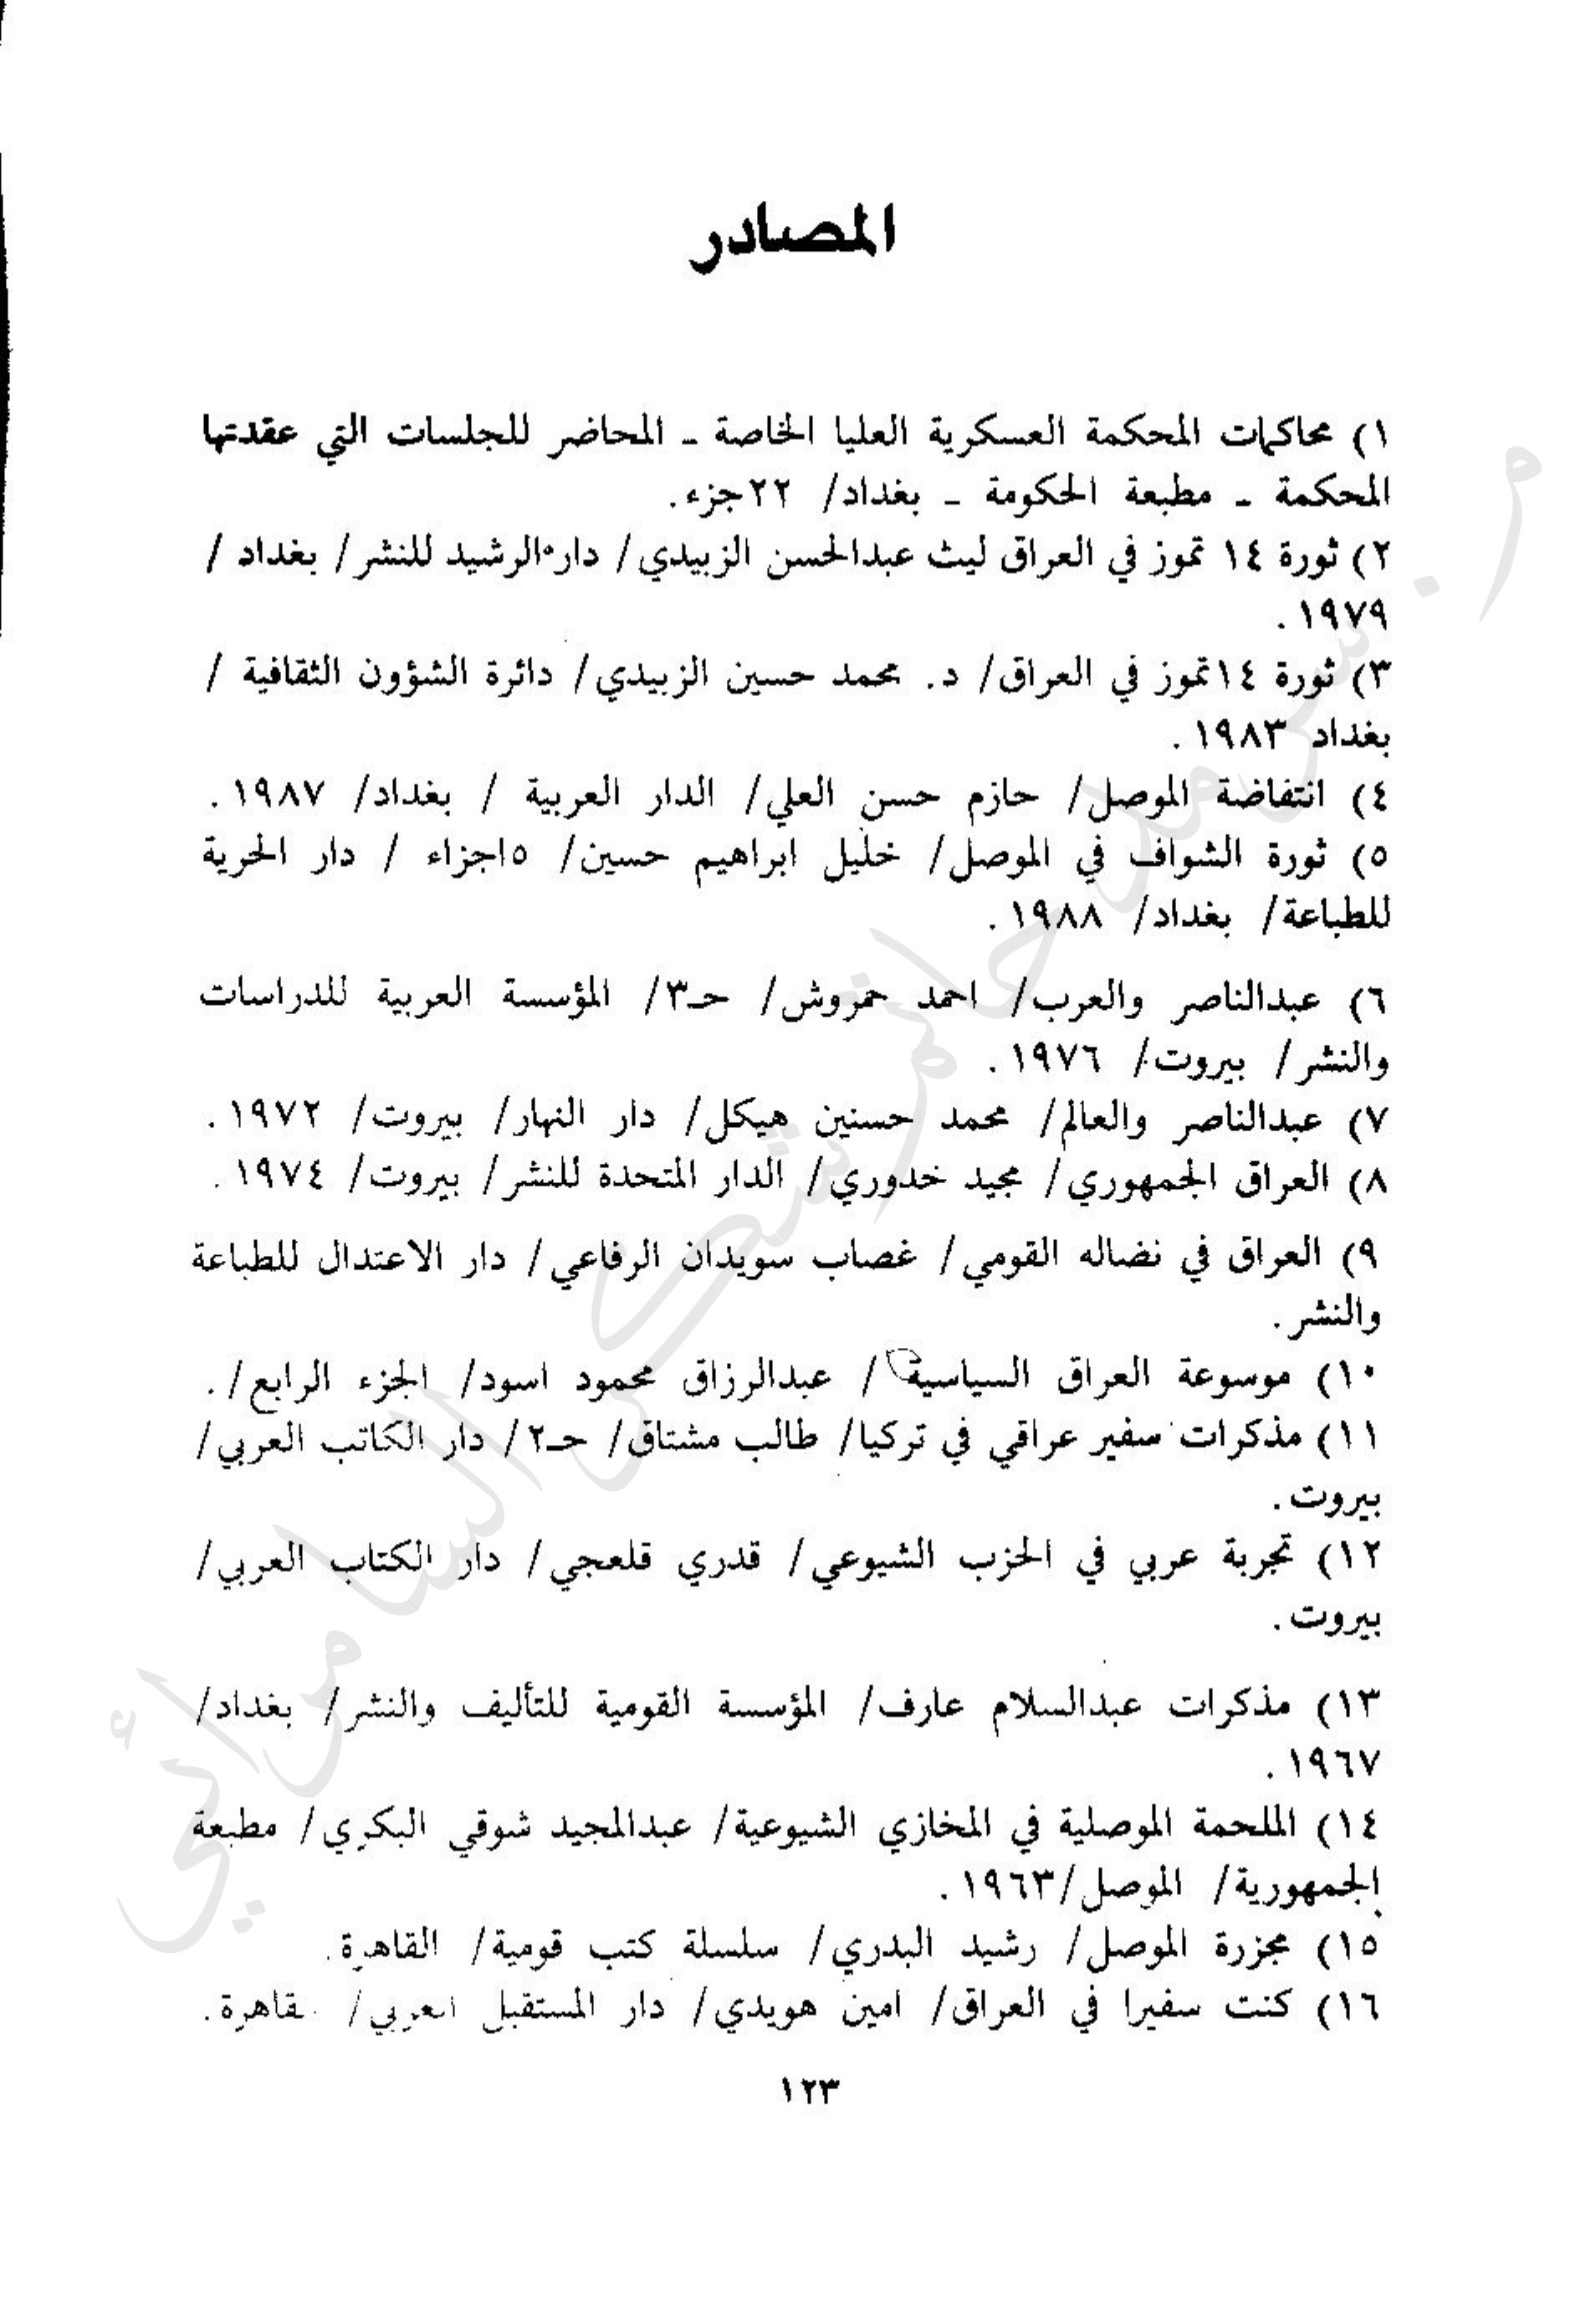 المصادر
١) محاكمات المحكمة العسكرية العليا الخاصة ـ المحاضر للجلسات التي عقدتها
المحكمة ـ مطبعة الحكومة ـ بغداد/ ٢٢جزء.
٢) ثورة ١٤ تموز في العراق ليث عبدالحسن الزبيدي/ دار الرشيد للنشر/ بغداد /
١٩٧٩.
٣) ثورة ١٤تموز في العراق/ د. محمد حسين الزبيدي/ دائرة الشؤون الثقافية /
بغداد ١٩٨٣.
٤) انتفاضة الموصل/ حازم حسن العلي/ الدار العربية / بغداد/ ١٩٨٧.
٥) ثورة الشواف في الموصل/ خليل ابراهيم حسين/ ٥اجزاء / دار الحرية
للطباعة/ بغداد/ ١٩٨٨.
٦) عبدالناصر والعرب/ احمد حمروش/ حـ٣/ المؤسسة العربية للدراسات
والنشر/ بيروت/ ١٩٧٦.
٧) عبدالناصر والعالم/ محمد حسنين هيكل/ دار النهار/ بيروت/ ١٩٧٢.
٨) العراق الجمهوري/ مجيد خدوري/ الدار المتحدة للنشر/ بيروت/ ١٩٧٤.
٩) العراق في نضاله القومي/ غصاب سويدان الرفاعي/ دار الاعتدال للطباعة
والنشر.
١٠) موسوعة العراق السياسية/ عبدالرزاق محمود اسود/ الجزء الرابع/.
١١) مذكرات سفير عراقي في تركيا/ طالب مشتاق/ حـ٢/ دار الكاتب العربي/
بيروت.
١٢) تجربة عربي في الحزب الشيوعي/ قدري قلعجي/ دار الكتاب العربي/
بيروت.
١٣) مذكرات عبدالسلام عارف/ المؤسسة القومية للتأليف والنشر/ بغداد/
١٩٦٧.
١٤) الملحمة الموصلية في المخازي الشيوعية/ عبدالمجيد شوقي البكري/ مطبعة
الجمهورية/ الموصل/١٩٦٣.
١٥) مجزرة الموصل/ رشيد البدري/ سلسلة كتب قومية/ القاهرة.
١٦) كنت سفيرا في العراق/ امين هويدي/ دار المستقبل العربي/ القاهرة.
١٢٣
م. سرمد حاتم شكر السامرائي